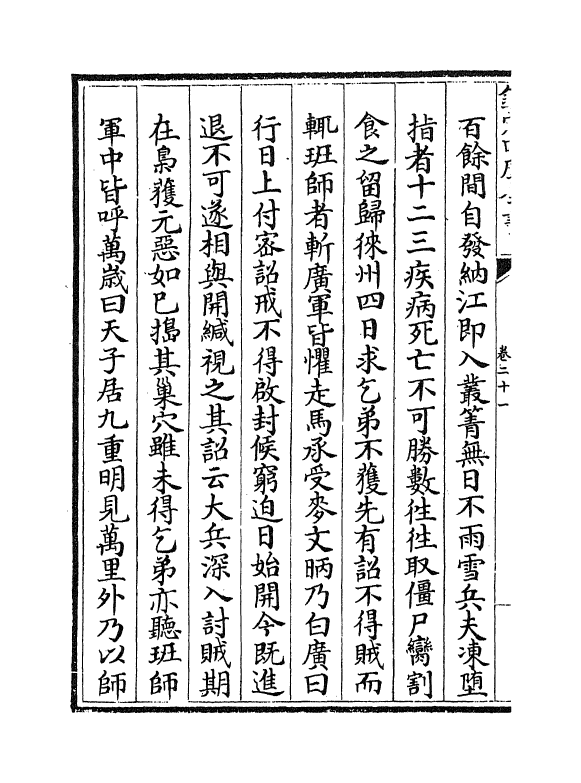 百餘間自發納江即入叢箐無日不雨雪兵夫凍墮
指者十二三疾病死亡不可勝數徃徃取僵尸臠割
食之留歸徠州四日求乞弟不獲先有詔不得賊而
輒班師者斬廣軍皆懼走馬承受麥文昞乃白廣曰
行日上付宻詔戒不得啟封候窮迫日始開今既進
退不可遂相與開緘視之其詔云大兵深入討賊期
在梟獲元惡如已搗其巢穴雖未得乞弟亦聽班師
軍中皆呼萬歳曰天子居九重明見萬里外乃以師
卷二十一